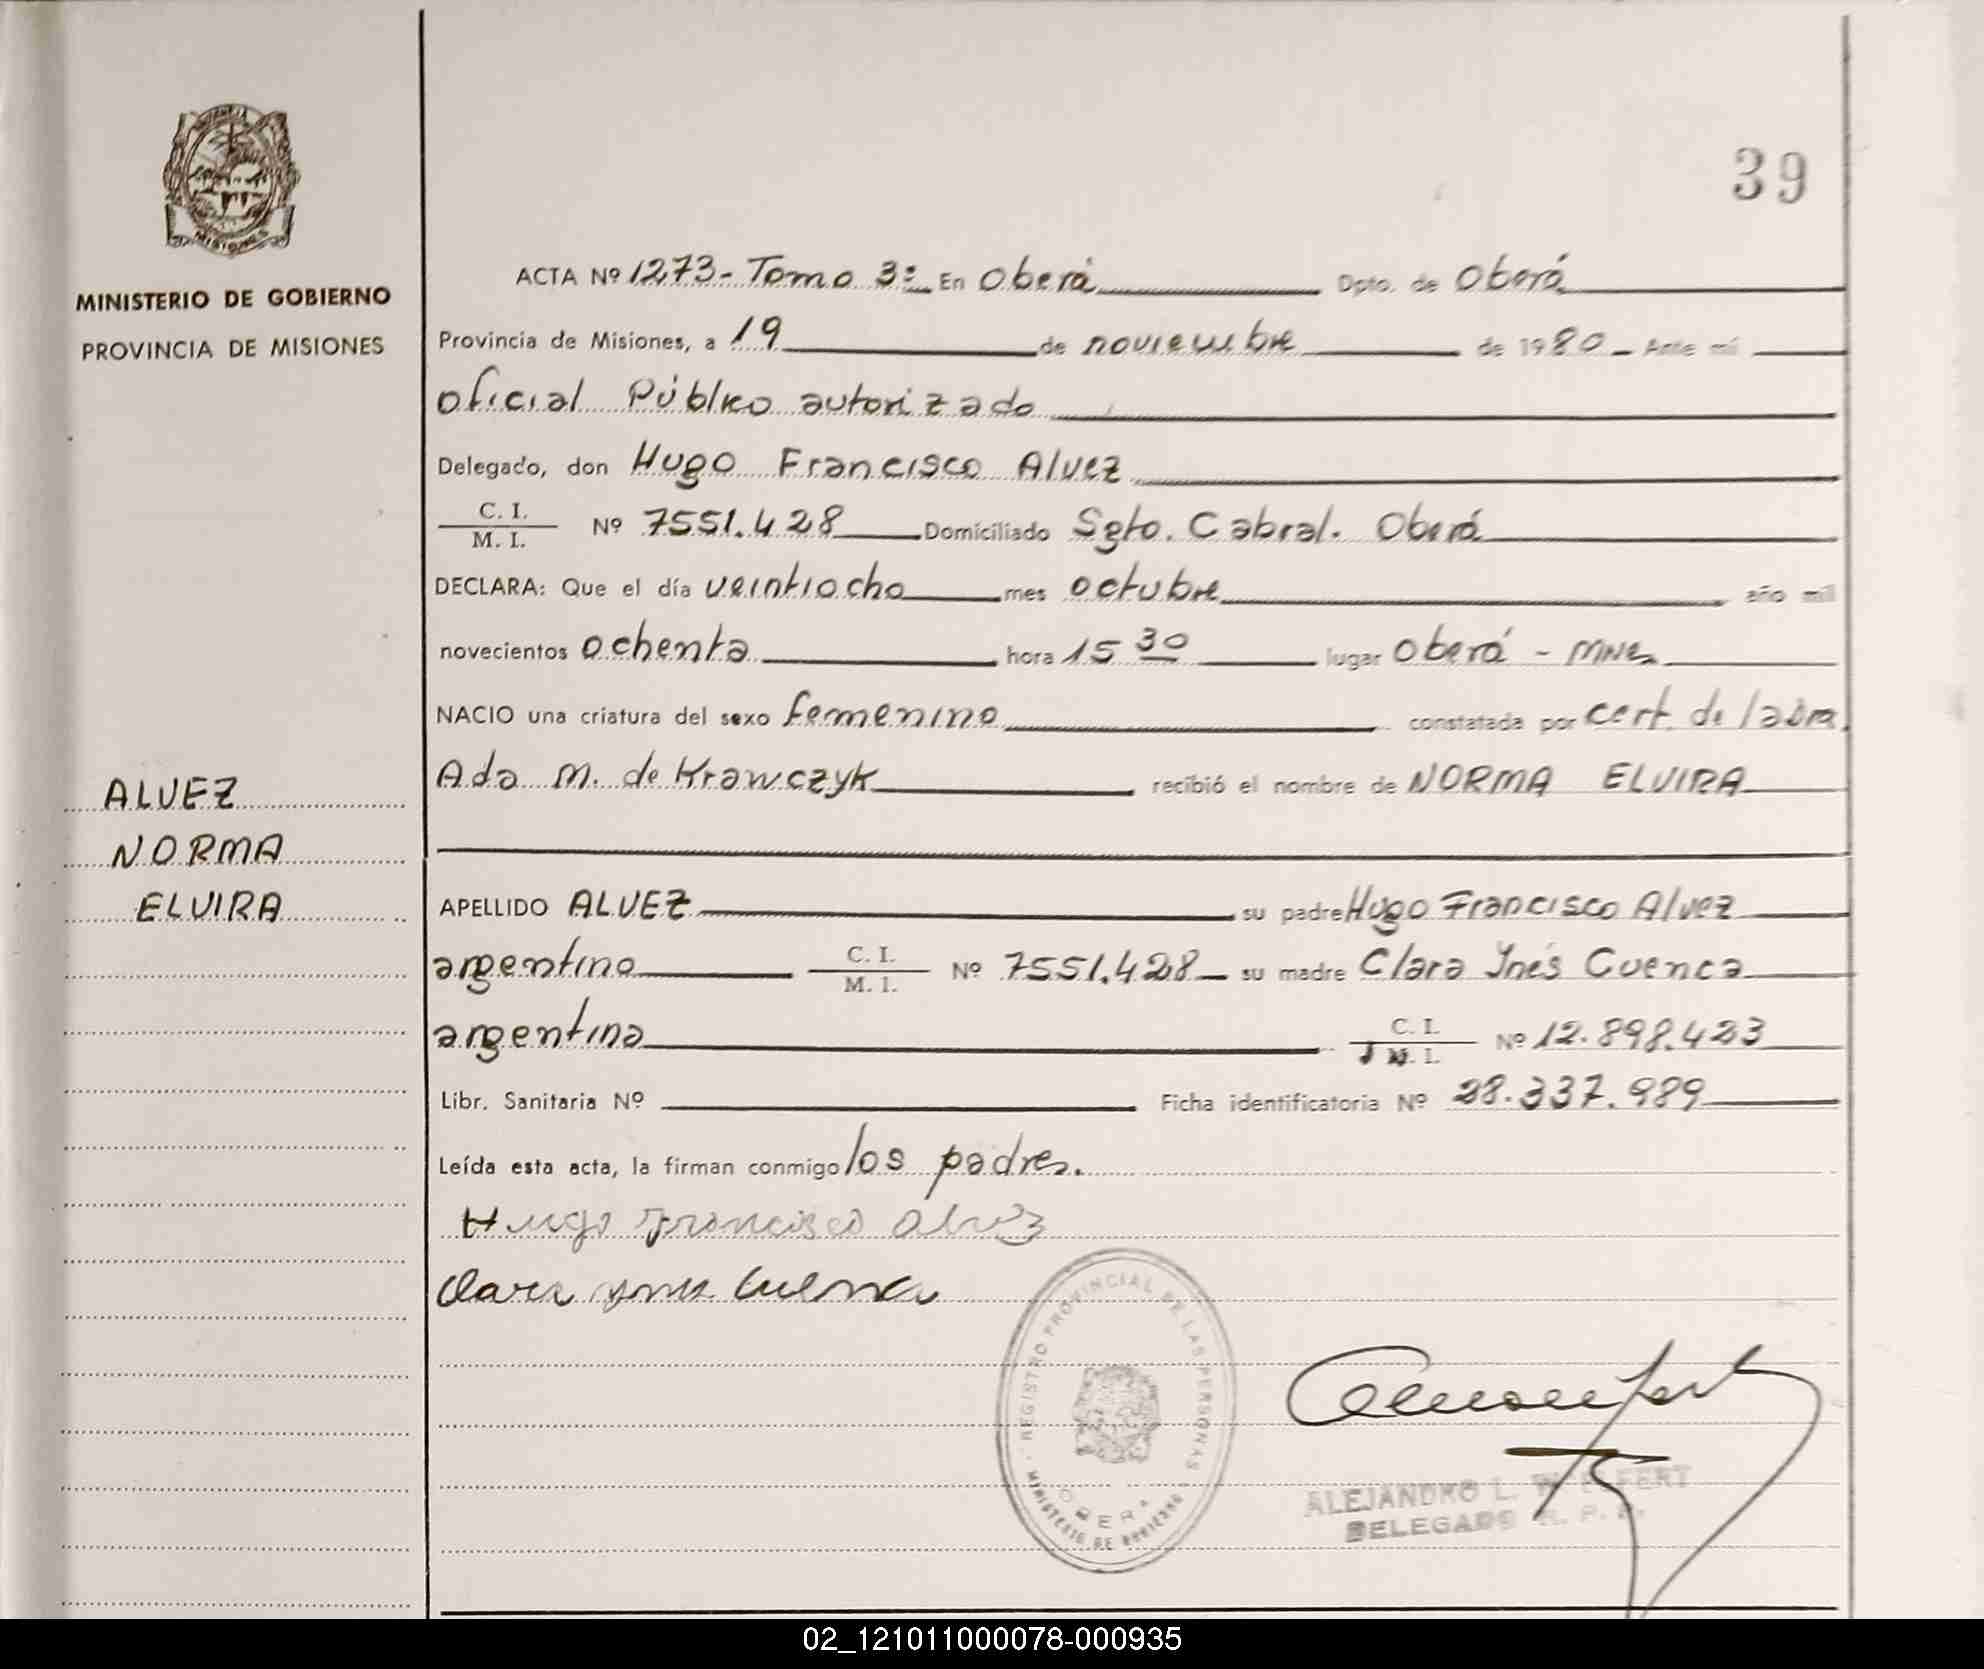 39
MISIONES
MINISTERIO DE GOBIERNO
PROVINCIA DE MISIONES
ACTA Nº 1273- Tomo 3º En Oberá Dpto. de Oberá
Provincia de Misiones, a 19 de noviembre de 1980 Ante mí
oficial Público autorizado
Delegado, don Hugo Francisco Alvez
C. I.
M. I. Nº 7551.428 Domiciliado Sgto. Cabral. Oberá
DECLARA: Que el día veintiocho mes octubre año mil
novecientos ochenta hora 15 30 lugar Oberá - Mnes
NACIO una criatura del sexo femenino constatada por cert. de la dra.
Ada M. de Krawczyk recibió el nombre de NORMA ELVIRA
ALVEZ
NORMA
ELVIRA
APELLIDO ALVEZ su padre Hugo Francisco Alvez
argentino C. I.
M. I. Nº 7551.428 su madre Clara Ynés Cuenca
argentina C. I.
M. I. Nº 12.898.423
Libr. Sanitaria Nº Ficha identificatoria Nº 28.337.989
Leída esta acta, la firman conmigo los padres.
Hugo Francisco Alvez
Clara Ynes Cuenca
REGISTRO PROVINCIAL DE LAS PERSONAS
OBERA
MINISTERIO DE GOBIERNO
ALEJANDRO L.
DELEGADO R. P. P.
02_121011000078-000935